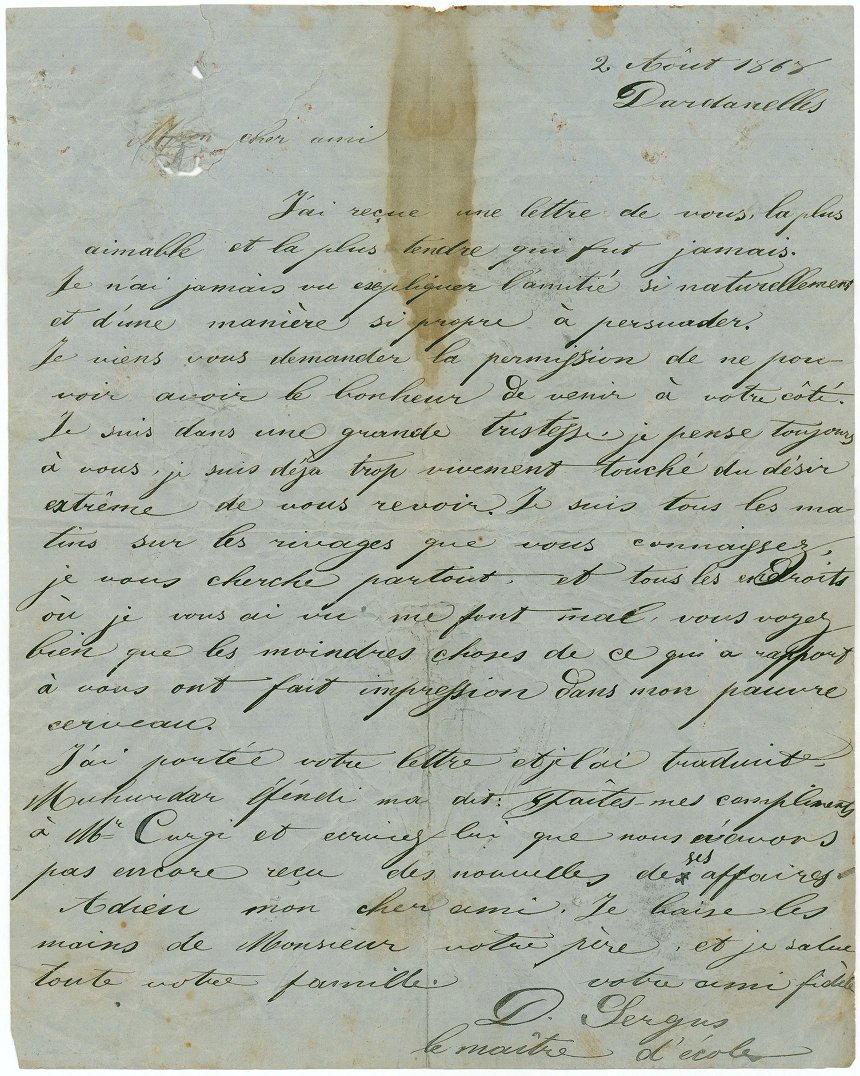 2 Aôut 1868
Dardanelles
Mon cher ami
J'ai reçue une lettre de vous, la plus
aimable et la plus tendre qui fut jamais.
Je n'ai jamais vu expliquer l'amitié si naturellement
et d'une manière si propre à persuader.
Je viens vous demander la permission de ne pou-
voir avoir le bonheur de venir à votre côté.
Je suis dans une grande tristesse, je pense toujours
à vous, je suis déja trop vivement touché du désir
extrême de vous revoir. Je suis tous les ma-
tins sur les rivages que vous connaissez,
je vous cherche partout, et tous les endroits
où je vous ai vu me font mal, vous voyez
bien que les moindres choses de ce qui a rapport
à vous ont fait impression dans mon pauvre
cerveau.
J'ai portée votre lettre et j'l'ai traduite.
Muhurdar Éféndi ma dit: Faîtes-mes compliments
à Mr Curgi et écrivez-lui que nous n'avons
pas encore reçu des nouvelles de ses affaires.
Adieu mon cher ami. Je baise les
mains de Monsieur votre père, et je salue
toute votre famille. votre ami fidèle
D. Sergus
le maître d'école